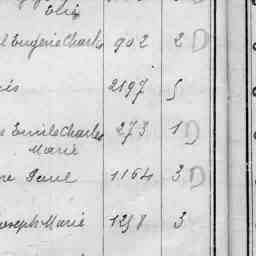 Elie
Eugène Charles 902 2 D
2197 5
Emile Charles 273 1 D
Marie
Paul 1164 3 D
Joseph Marie 1258 3